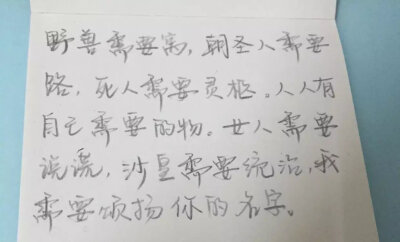 野兽需要窝，朝圣人需要
路，死人需要灵柩。人人有
自己需要的物。女人需要
说谎，沙皇需要统治，我
需要颂扬你的名字。